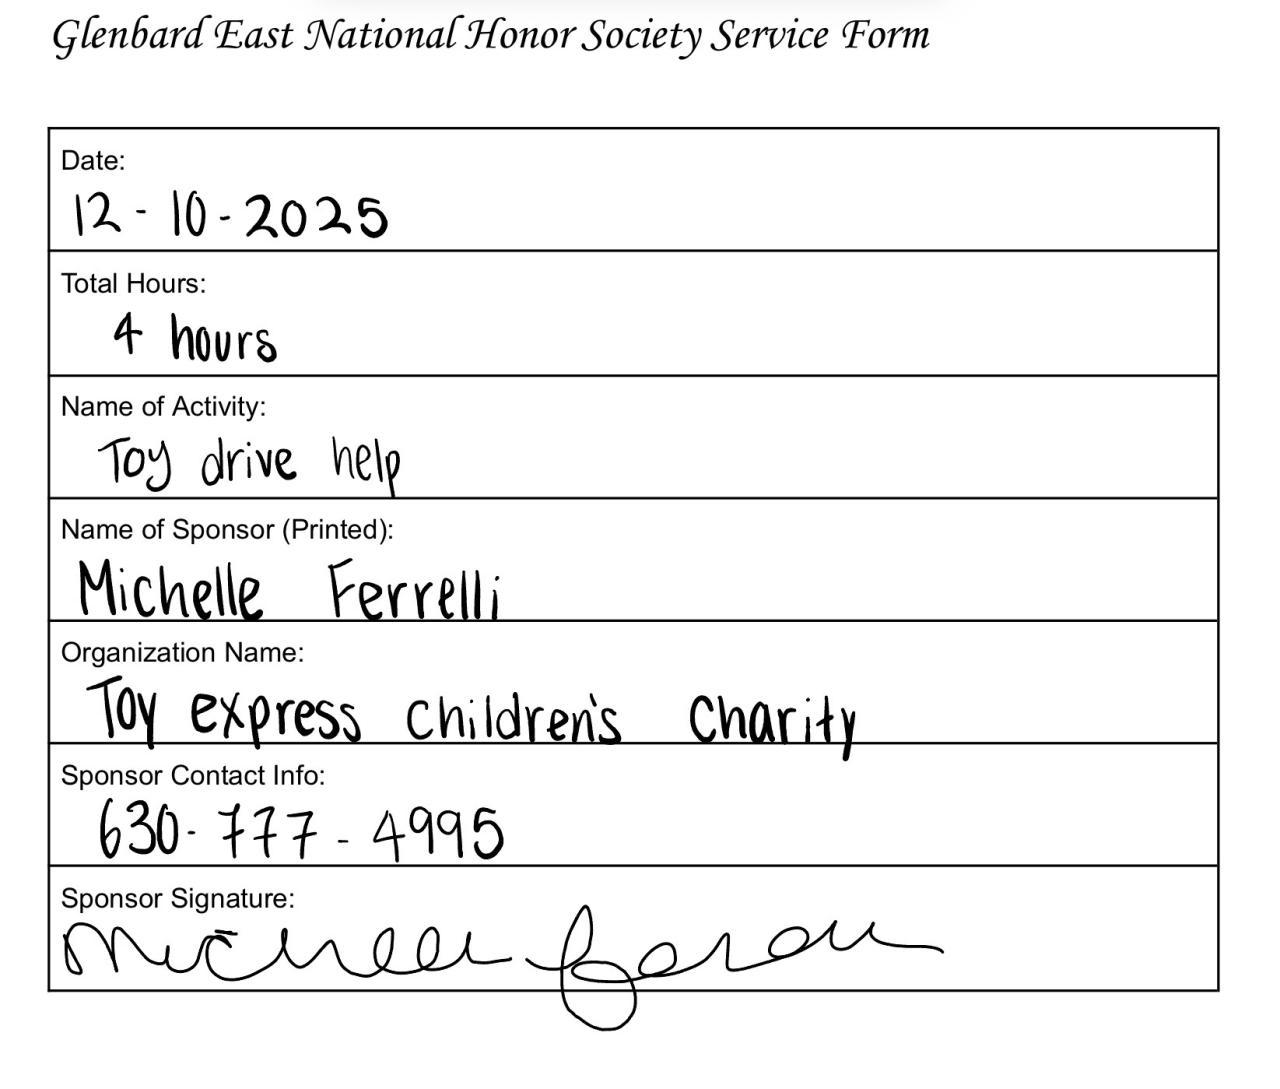 Glenbard East National Honor Society Service Form
Date:
12-10-2025
Total Hours:
4 hours
Name of Activity:
Toy drive help
Name of Sponsor (Printed):
Michelle Ferrelli
Organization Name:
Toy express children's Charity
Sponsor Contact Info:
630-777-4995
Sponsor Signature: